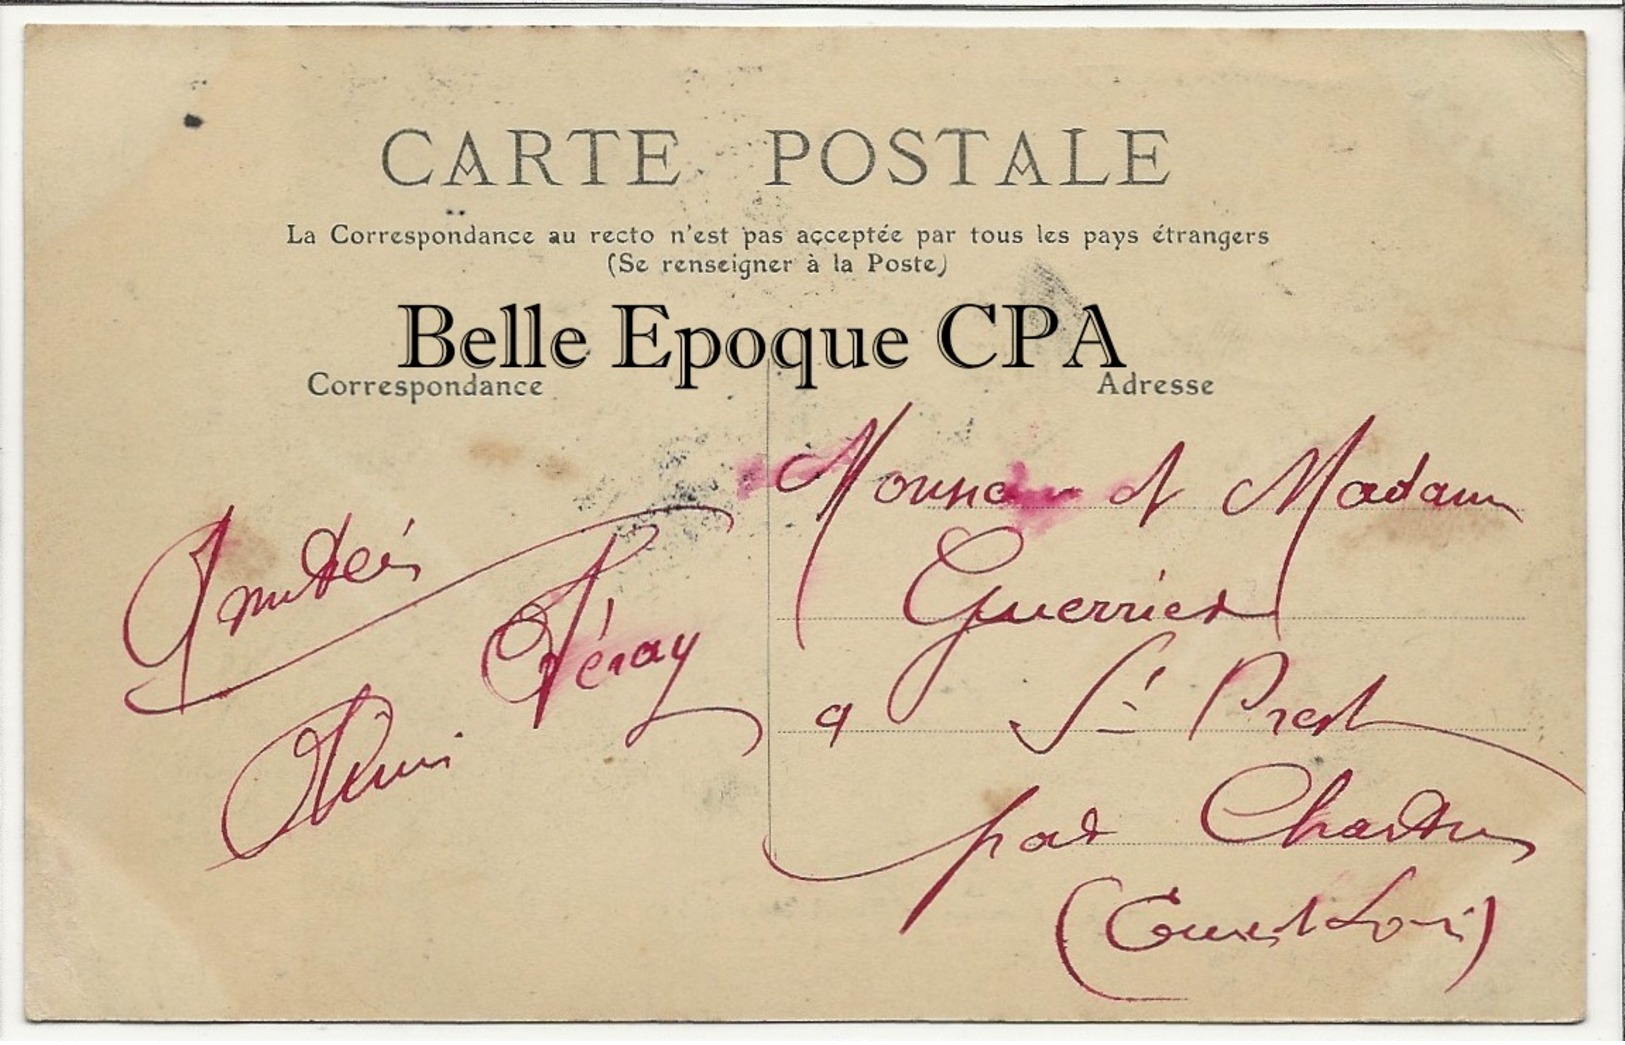 CARTE POSTALE
La Correspondance au recto n'est pas acceptée par tous les pays étrangers
(Se renseigner à la Poste)
Belle Epoque CPA
Correspondance
Adresse
Amitiés
Féray
Monsieur et Madame
Guerrier
a St Prest
par Chartres
(Eure et Loir)